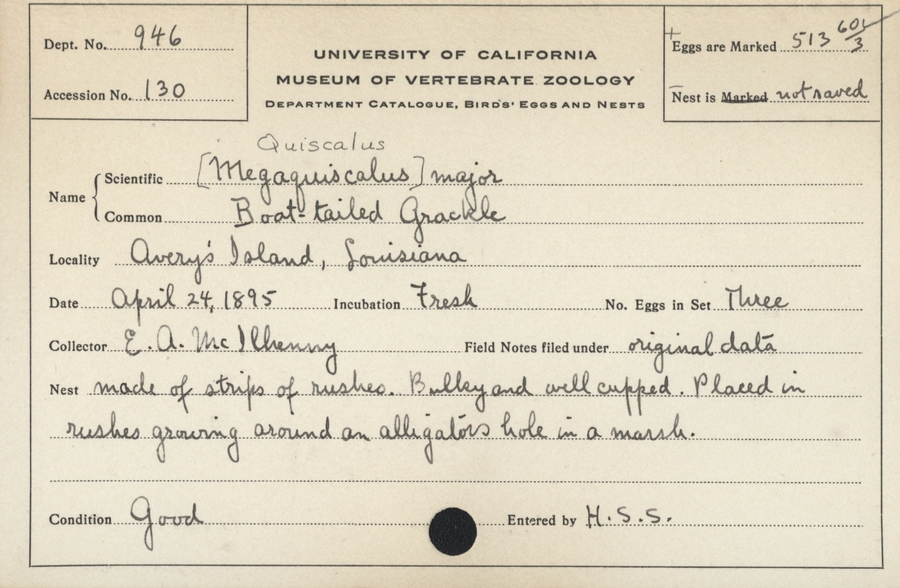 Dept. No. 946
UNIVERSITY OF CALIFORNIA
MUSEUM OF VERTEBRATE ZOOLOGY
DEPARTMENT CATALOGUE, BIRDS' EGGS AND NESTS
Eggs are Marked 513 601/3
Accession No. 130
Nest is Marked not saved
Quiscalus
Name { Scientific [Megaquiscalus] major
Common Boat-tailed Grackle
Locality Avery's Island, Louisiana
Date April 24, 1895 Incubation Fresh No. Eggs in Set Three
Collector E. A. McIlhenny Field Notes filed under original data
Nest made of strips of rushes. Bulky and well cupped. Placed in
rushes growing around an alligator's hole in a marsh.
Condition Good Entered by H.S.S.